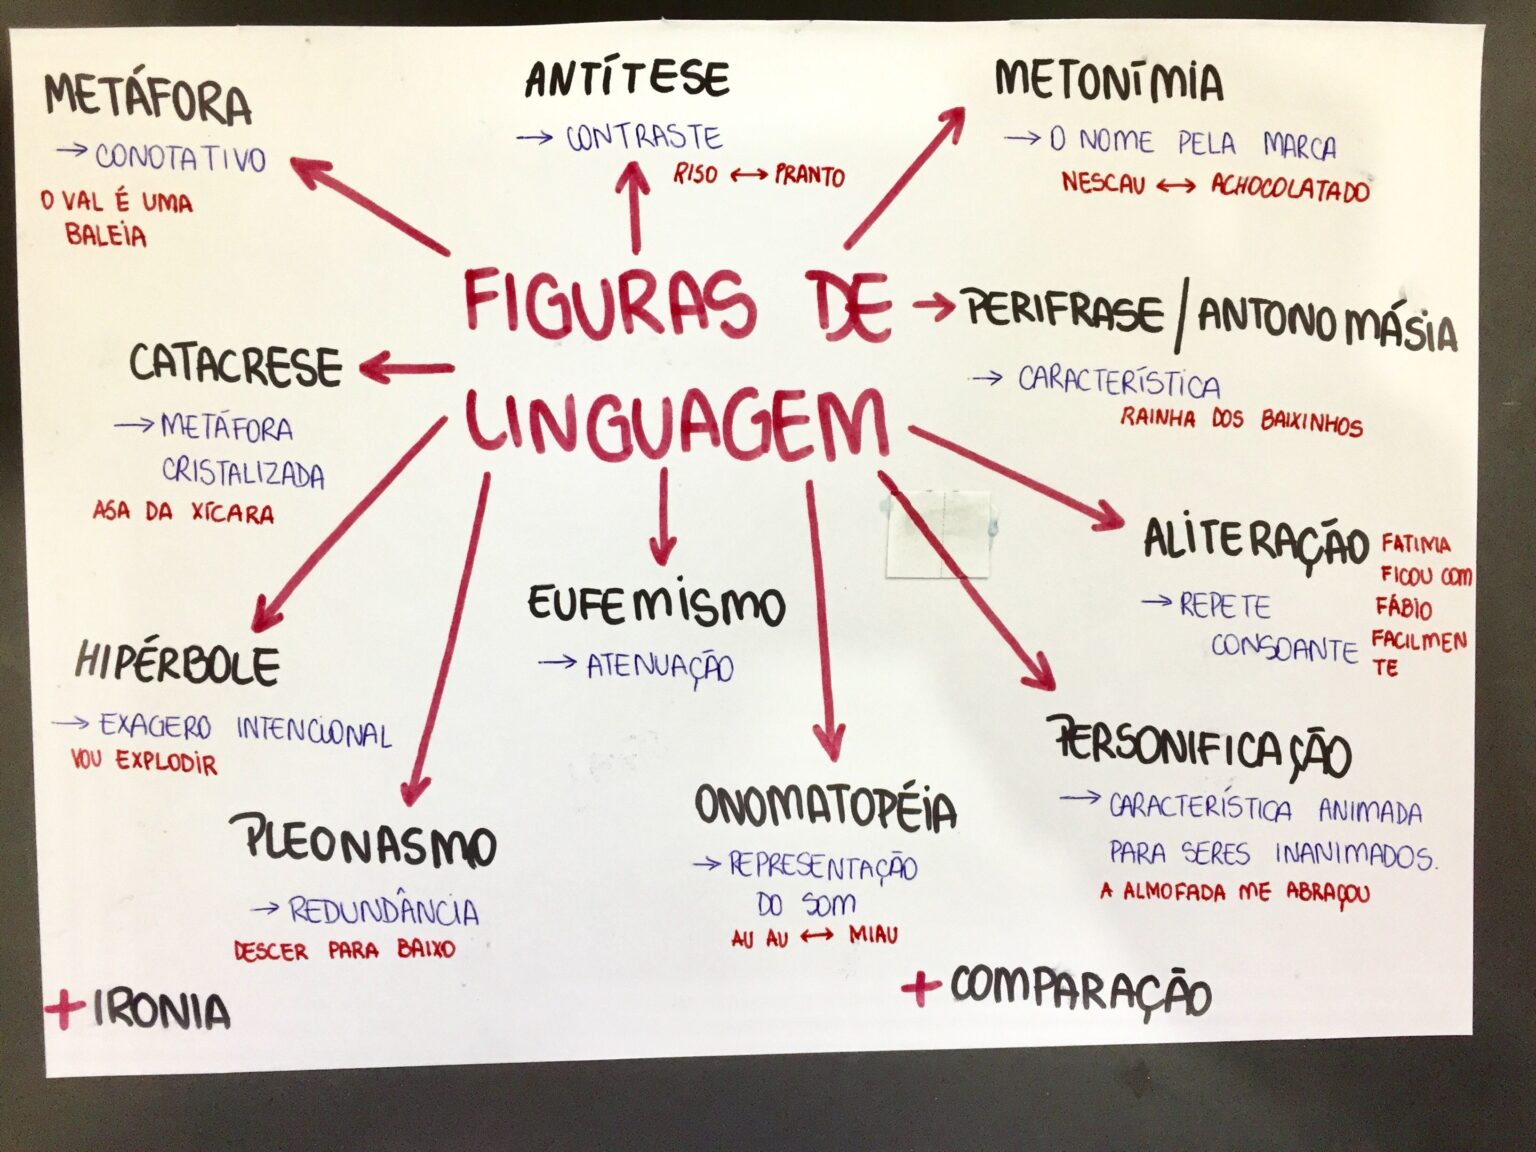 METÁFORA
→ CONOTATIVO
O VAL É UMA
BALEIA
ANTÍTESE
→ CONTRASTE
RISO ↔ PRANTO
METONÍMIA
→ O NOME PELA MARCA
NESCAU ↔ ACHOCOLATADO
FIGURAS DE
LINGUAGEM
PERIFRASE / ANTONOMÁSIA
→ CARACTERÍSTICA
RAINHA DOS BAIXINHOS
CATACRESE
→ METÁFORA
CRISTALIZADA
ASA DA XÍCARA
ALITERAÇÃO
→ REPETE
CONSOANTE
FATIMA
FICOU COM
FÁBIO
FACILMEN
TE
EUFEMISMO
→ ATENUAÇÃO
HIPÉRBOLE
→ EXAGERO INTENCIONAL
VOU EXPLODIR
PERSONIFICAÇÃO
→ CARACTERÍSTICA ANIMADA
PARA SERES INANIMADOS.
A ALMOFADA ME ABRAÇOU
PLEONASMO
→ REDUNDÂNCIA
DESCER PARA BAIXO
ONOMATOPÉIA
→ REPRESENTAÇÃO
DO SOM
AU AU ↔ MIAU
+ IRONIA
+ COMPARAÇÃO